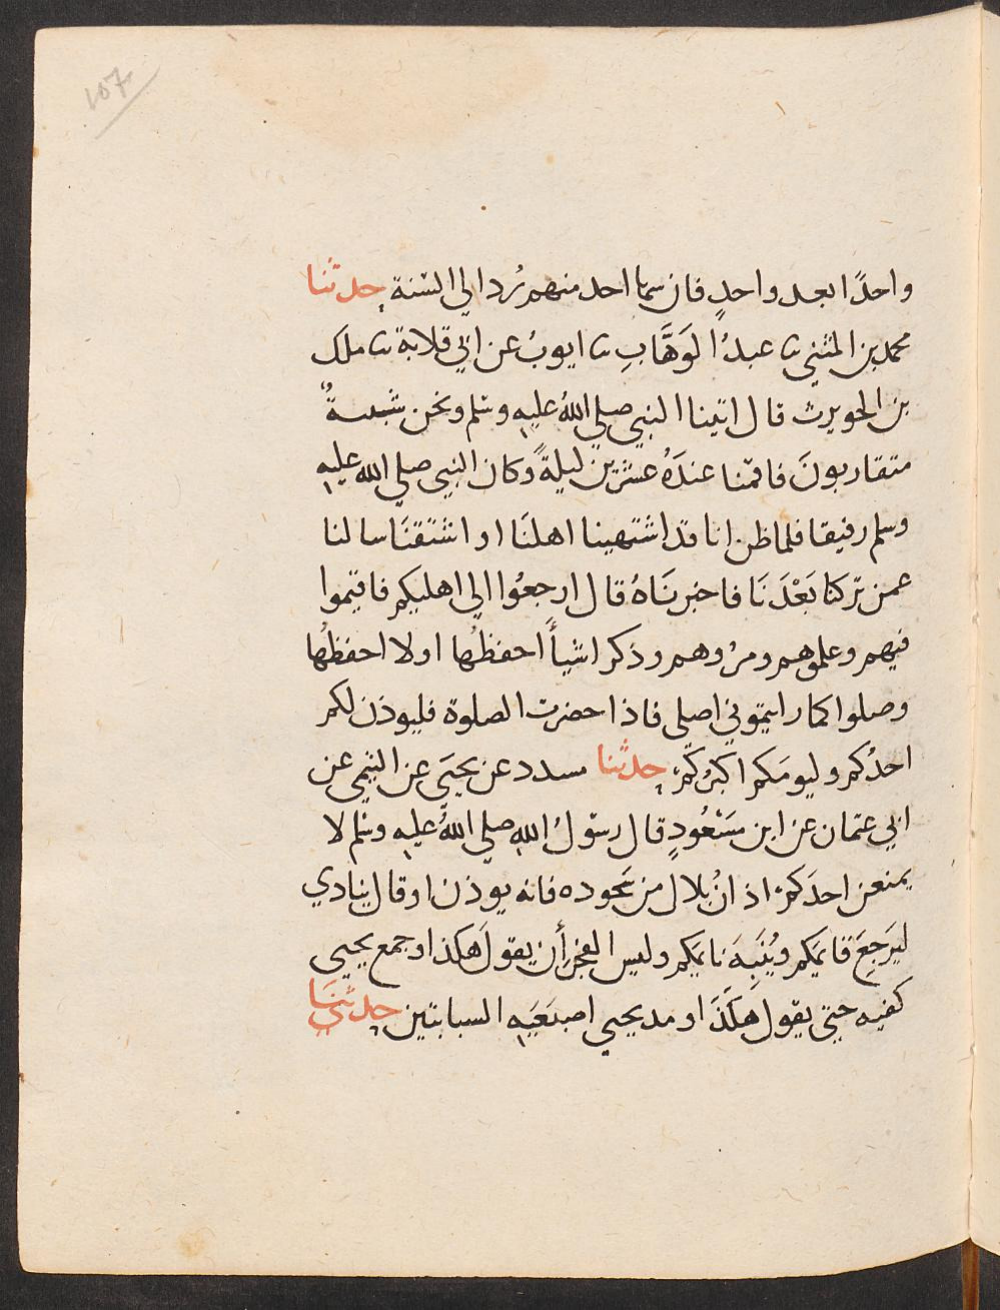 107
واحدًا بعد واحدٍ فان سها احد منهم رُد الي السّنة حدثنا
محمد بن المثني ثنا عبدُ الوَهَّابِ ثنا ايوبُ عن ابي قلابة ثنا ملك
بن الحويرث قال اتينا النبي صلي اللهُ عليه وسلم ونحن شببةٌ
متقاربونَ فاقمنا عندَهُ عشرين ليلةً وكان النبي صلي الله عليه
وسلم رفيقا فلما ظن انا قد اشتهينا اهلنَا او اشتقنَا سالنا
عمن تركنا بَعْدَنَا فاخبرنَاهُ قال ارجعُوا الي اهليكم فاقيموا
فيهم وعلموهم ومرُوهم وذكر اشيأً احفظُها اولا احفظُها
وصلوا كما رايتموني اصلي فاذا حضرت الصلوة فليوذن لكم
احدُكم وليومَكم اكبرُكم، حدثنا مسدد عن يحيَي عن التيمي عن
ابي عثمان عن ابن مسَعُودٍ قال رسولُ اللهِ صلي اللهُ عليه وسلم لا
يمنعن احدَكم، اذانُ بلال من سَحوده فانه يوذن او قال ينادي
ليَرجِعَ قايمَكم ويُنَبِهَ نايمَكم وليس الفجر أن يقولَ هكذا وجمع يحيي
كفيه حتي يقول هكَذَا ومد يحيي اصبعَيَه السبابتين حدثنَا